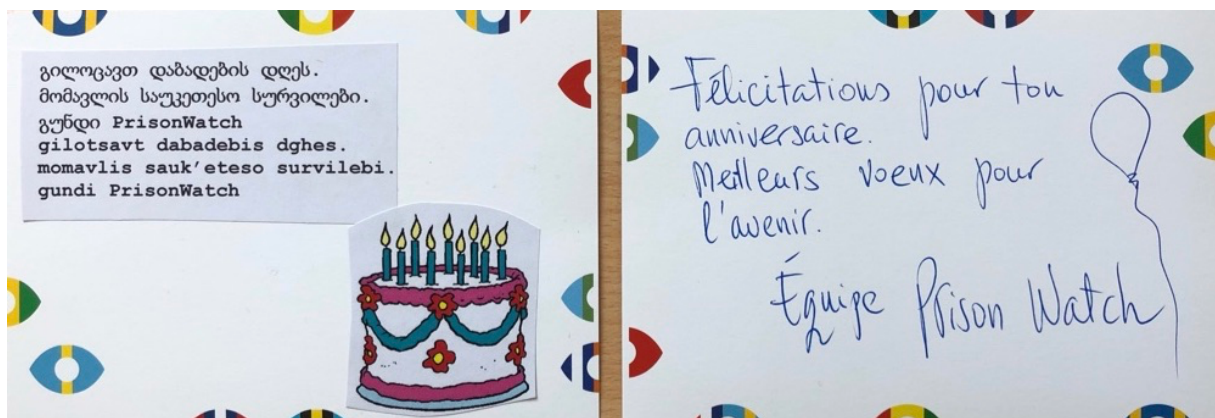 გილოცავთ დაბადების დღეს.
მომავლის საუკეთესო სურვილები.
გუნდი PrisonWatch
gilotsavt dabadebis dghes.
momavlis sauk'eteso survilebi.
gundi PrisonWatch
Félicitations pour ton
anniversaire.
Meilleurs voeux pour
l'avenir.
Équipe Prison Watch